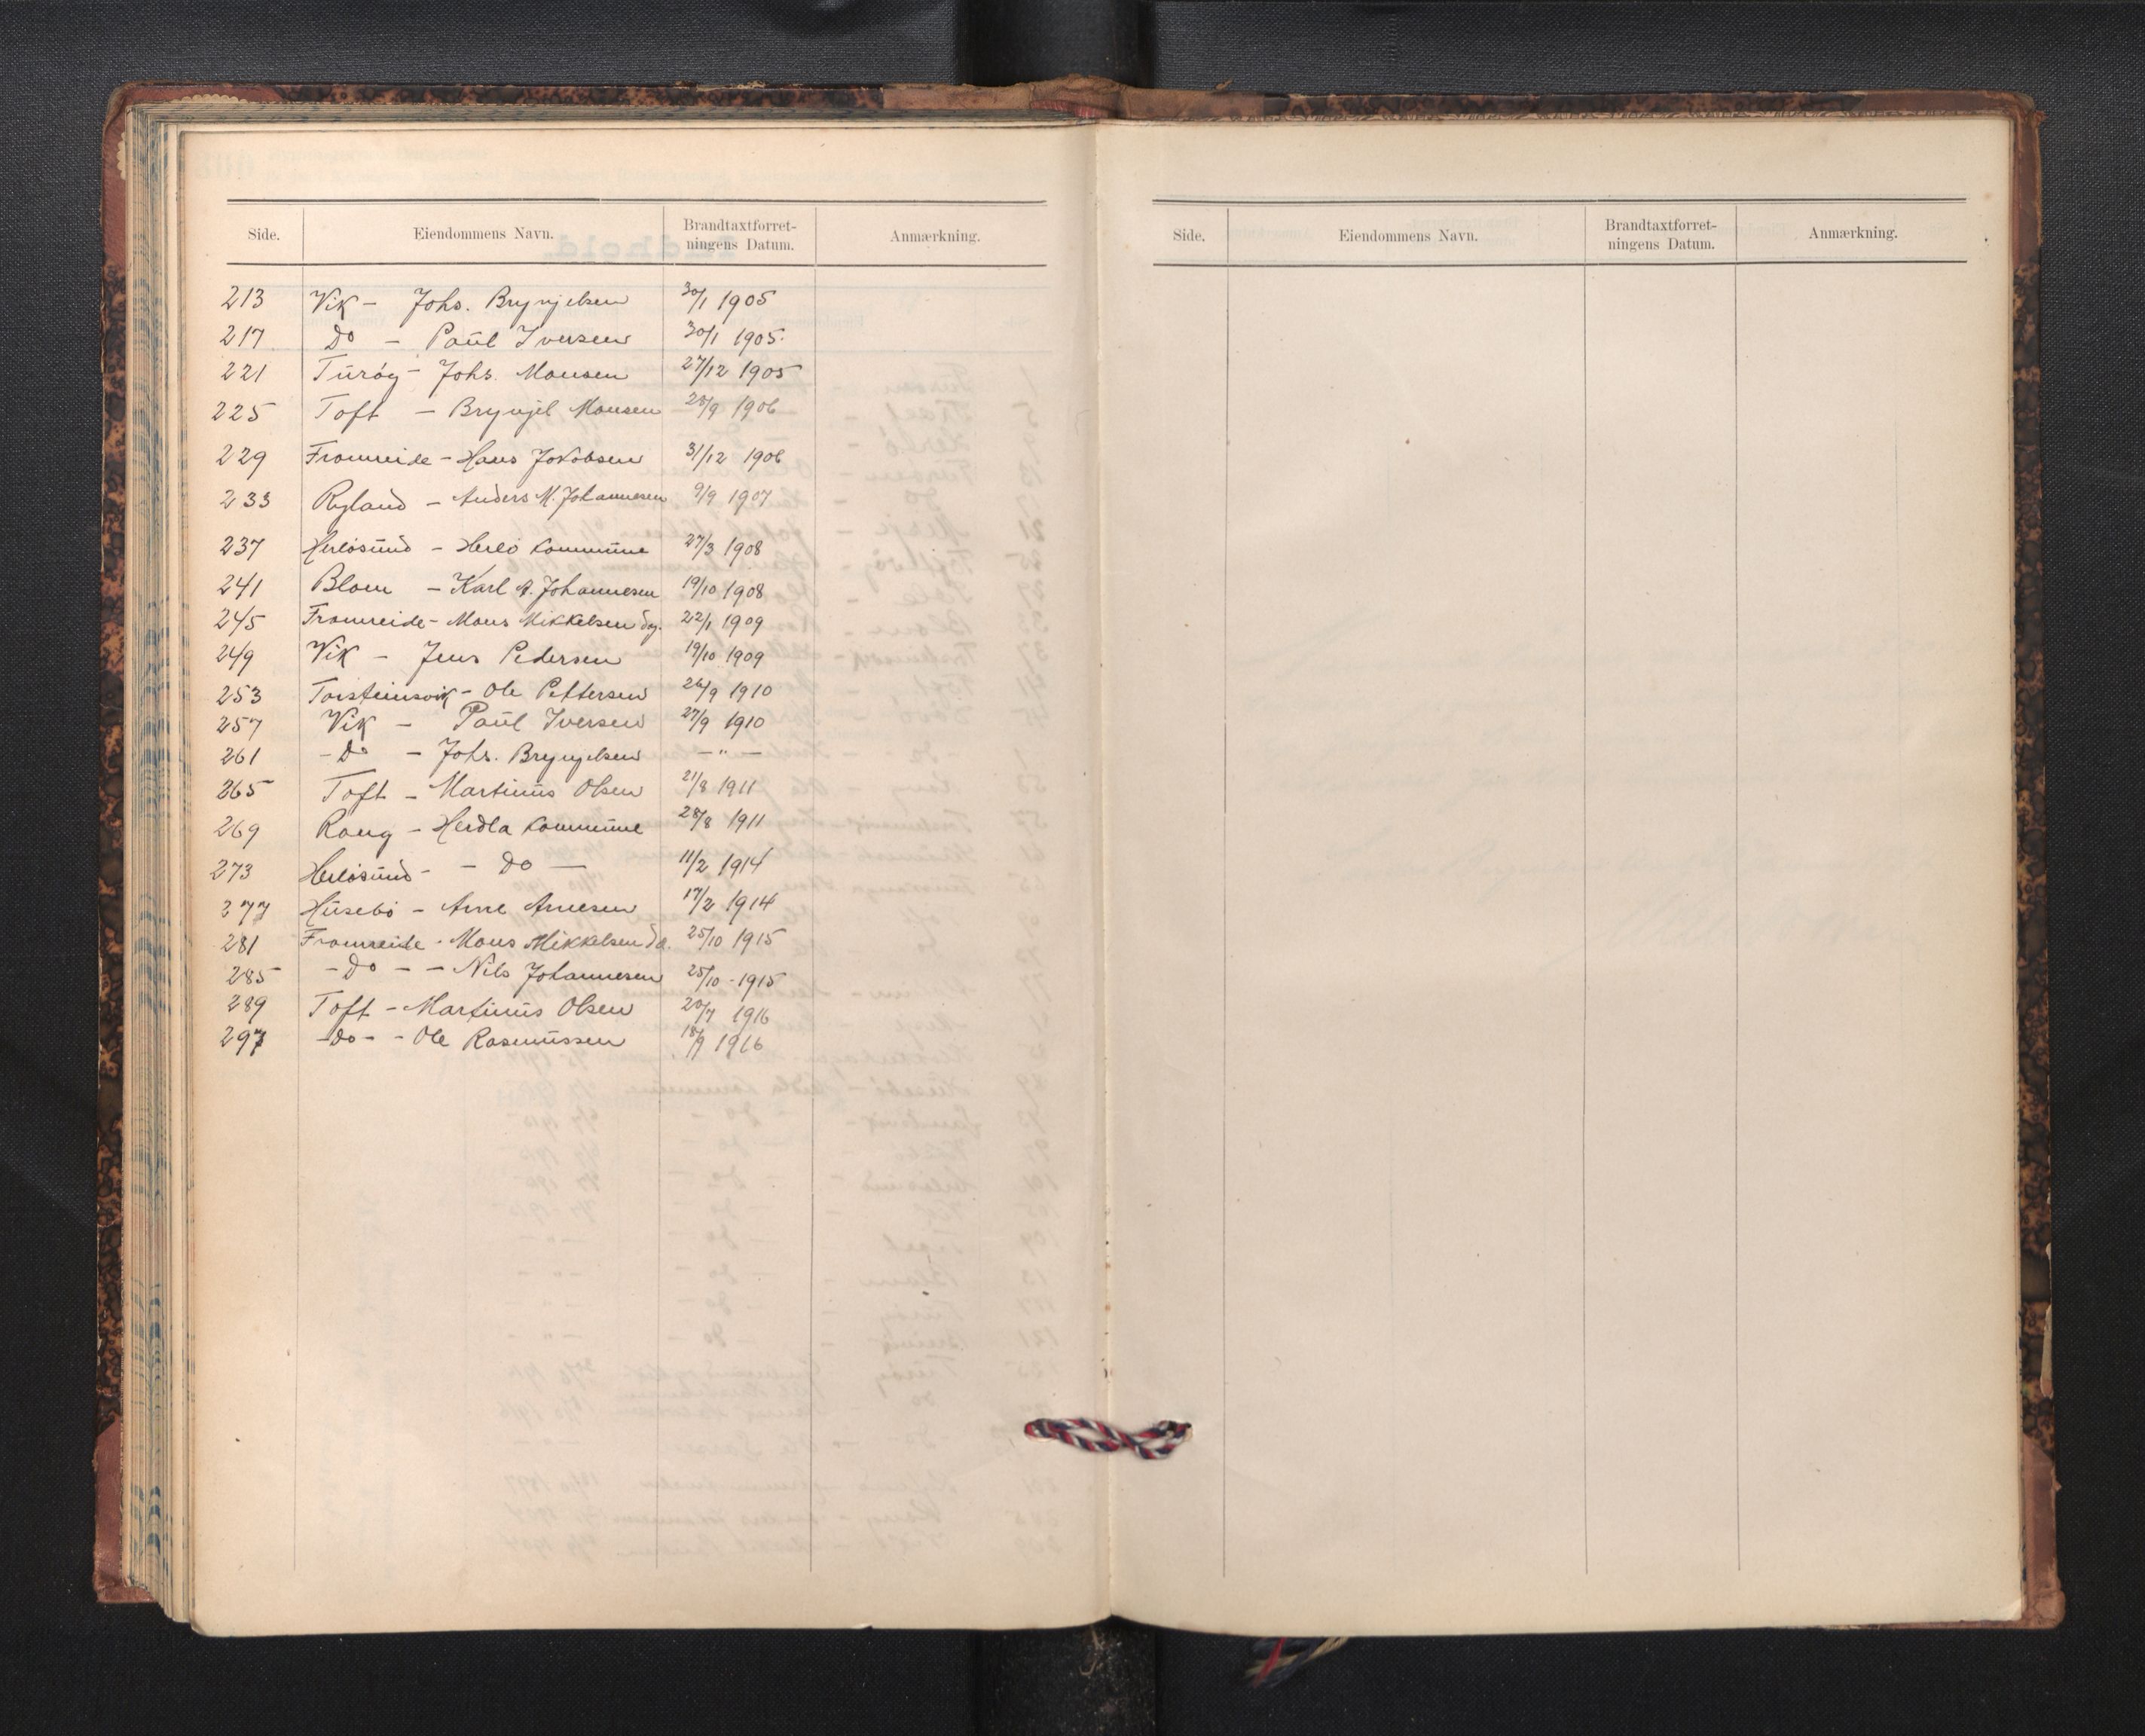 Side. Eiendommens Navn. Brandtaxtforret-ningens Datum. Anmærkning.
213 Vik - Johs. Brynjelsen 30/1 1905
217 Do - Paul Iversen 30/1 1905.
221 Turöy - Johs. Monsen 27/12 1905
225 Toft - Brynjel Monsen 28/9 1906
229 Fromreide - Hans Jakobsen 31/12 1906
233 Ryland - Anders M. Johannesen 9/9 1907
237 Herlösund - Herlö kommune 27/3 1908
241 Blom - Karl A. Johannesen 19/10 1908
245 Fromreide - Mons Mikkelsen dy. 22/1 1909
249 Vik - Jens Pedersen 19/10 1909
253 Torsteinsvik - Ole Pettersen 26/9 1910
257 Vik - Paul Iversen 27/9 1910
261 - Do - Johs. Brynjelsen - " -
265 Toft - Martinus Olsen 21/8 1911
269 Rong - Herdla kommune 28/8 1911
273 Herlösund - - Do - 11/2 1914
277 Husebö - Arne Arnesen 17/2 1914
281 Fromreide - Mons Mikkelsen 25/10 1915
285 - Do - - Nils Johannesen 25/10 - 1915
289 Toft - Martinus Olsen 20/7 1916
297 - Do - - Ole Rasmussen 18/9 1916
Side. Eiendommens Navn. Brandtaxtforret-ningens Datum. Anmærkning.